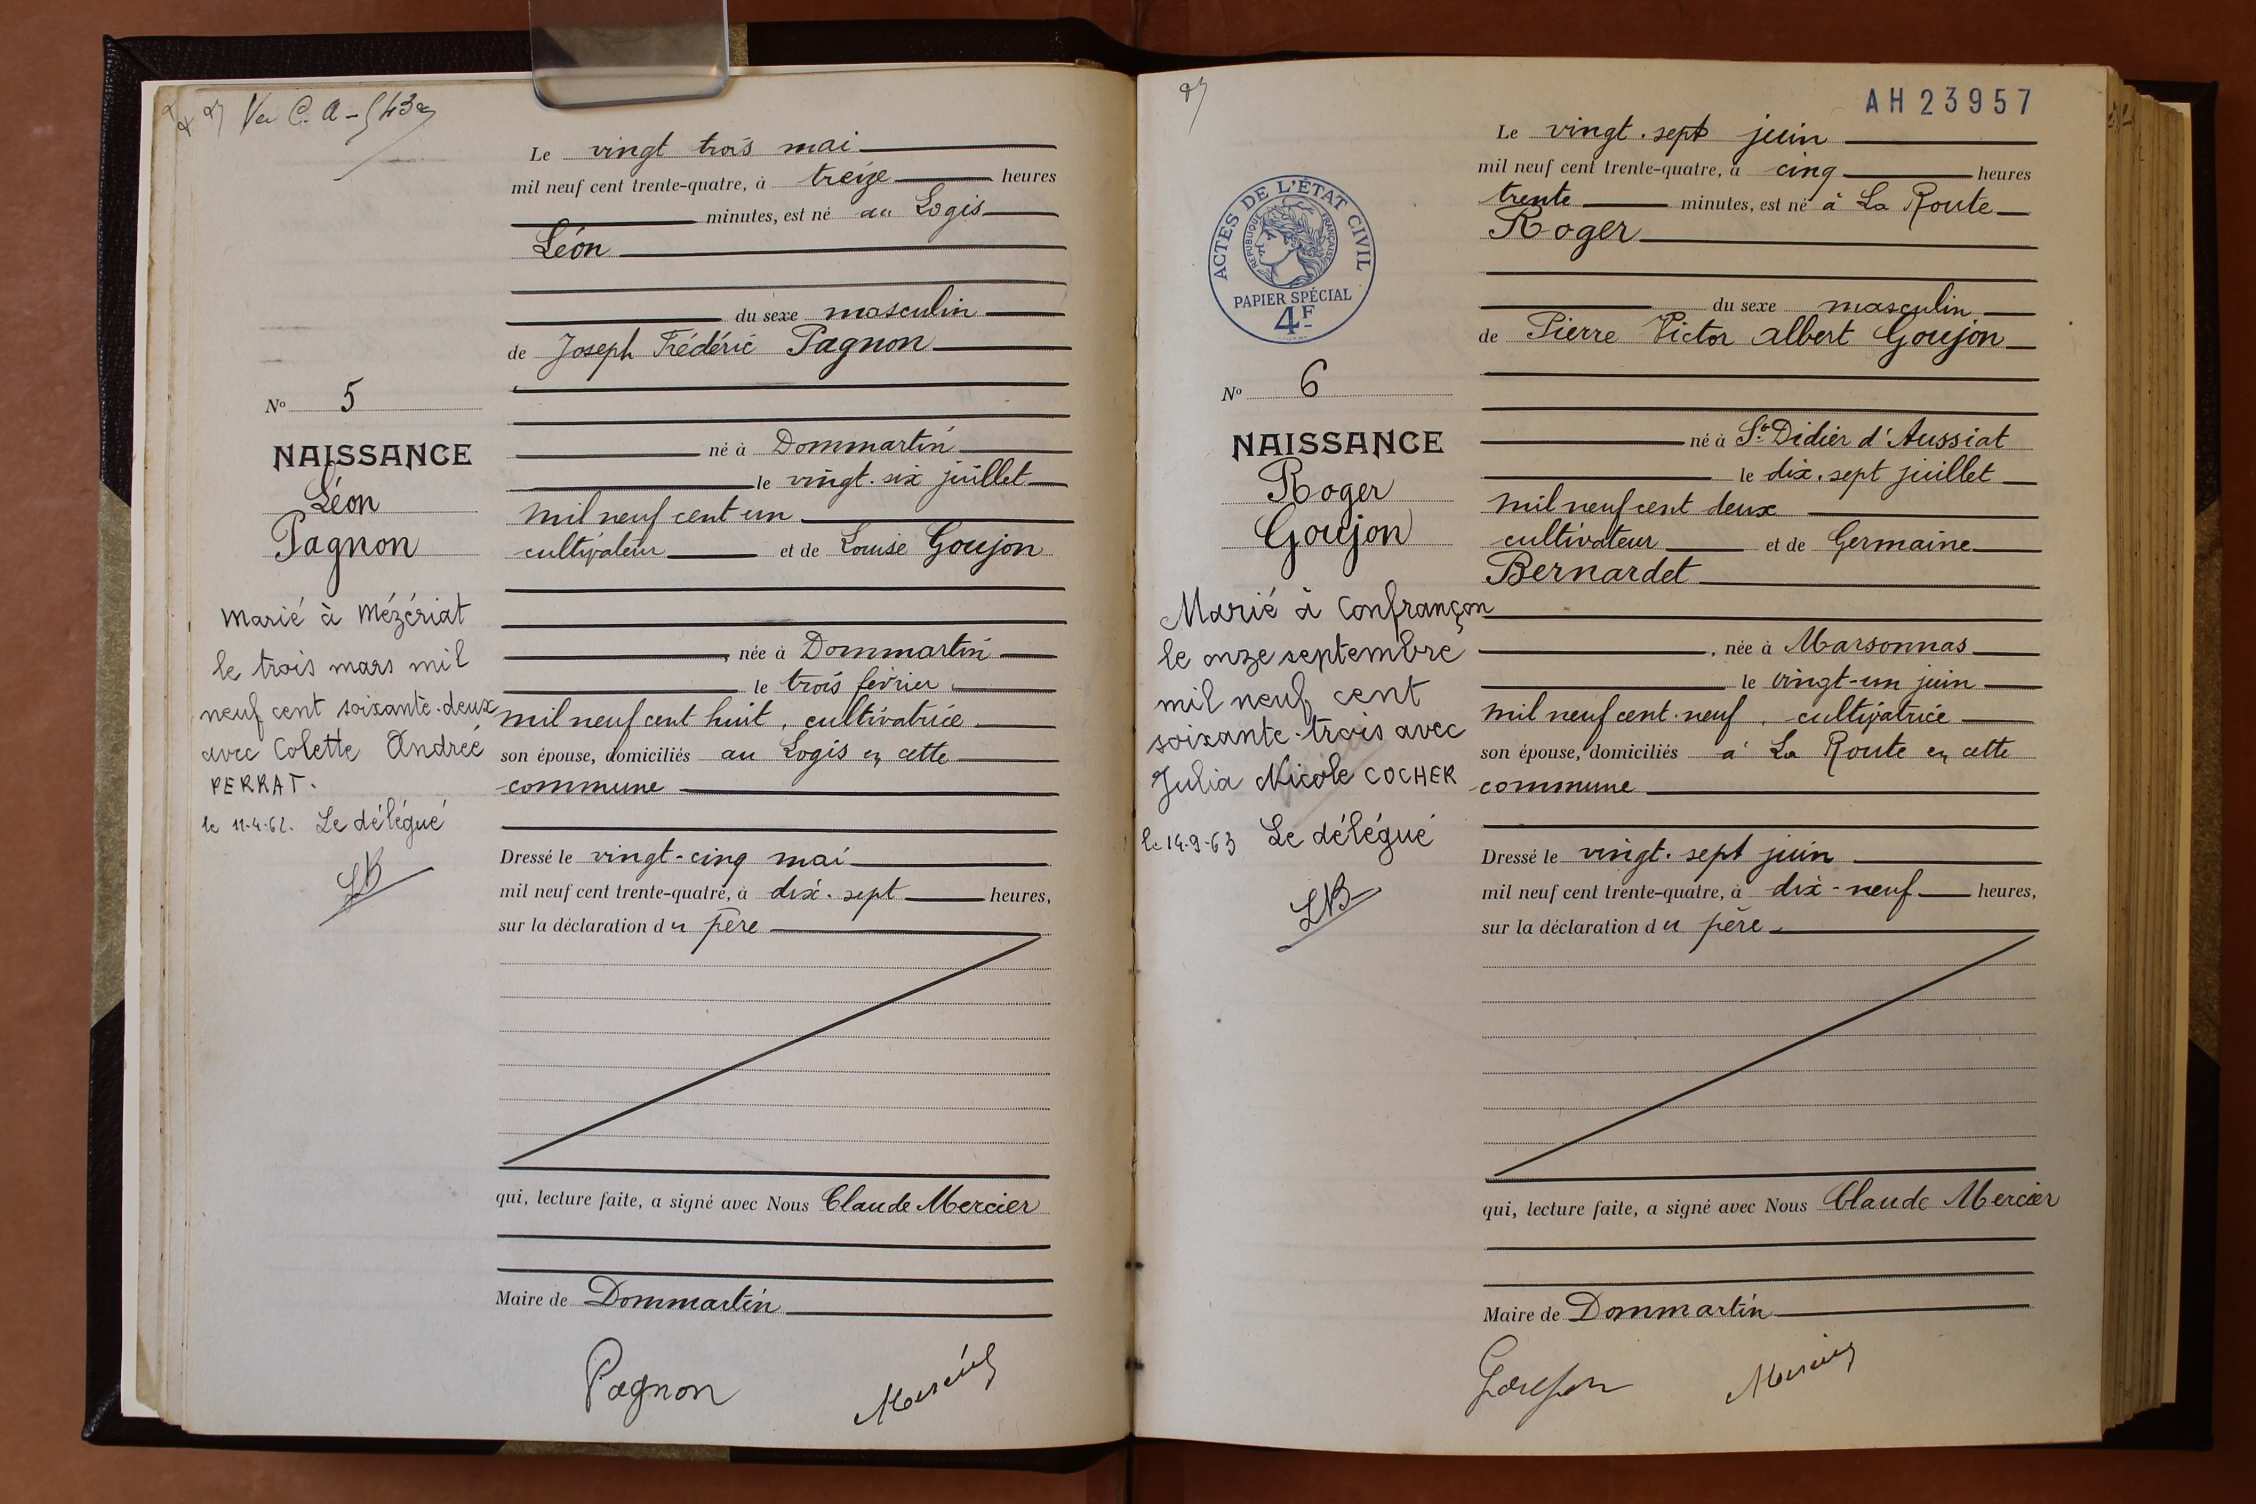 Le vingt trois mai
mil neuf cent trente-quatre, à treize heures
minutes, est né au Logis
Léon
du sexe masculin
de Joseph Frédéric Pagnon
né à Dommartin
le vingt-six juillet
mil neuf cent un
cultivateur et de Louise Goujon
, née à Dommartin
le trois février
mil neuf cent huit, cultivatrice
son épouse, domiciliés au Logis en cette
commune
Dressé le vingt-cinq mai
mil neuf cent trente-quatre, à dix-sept heures,
sur la déclaration du père
qui, lecture faite, a signé avec Nous Claude Mercier
Maire de Dommartin
Pagnon
Nº 5
NAISSANCE
Léon
Pagnon
Marié à Mézériat
le trois mars mil
neuf cent soixante-deux
avec Colette Andreé
PERRAT.
le 11-4-62. Le délégué
AH23957
Le vingt-sept juin
mil neuf cent trente-quatre, à cinq heures
trente minutes, est né à La Route
Roger
du sexe masculin
de Pierre Victor Albert Goujon
né à St Didier d'Aussiat
le dix-sept juillet
mil neuf cent deux
cultivateur et de Germaine
Bernardet
, née à Marsonnas
le vingt-un juin
mil neuf cent-neuf, cultivatrice
son épouse, domiciliés à La Route en cette
commune
Dressé le vingt-sept juin
mil neuf cent trente-quatre, à dix-neuf heures,
sur la déclaration du père
qui, lecture faite, a signé avec Nous Claude Mercier
Maire de Dommartin
Goujon
ACTES DE L'ÉTAT CIVIL
RÉPUBLIQUE FRANÇAISE
PAPIER SPÉCIAL
4F
Nº 6
NAISSANCE
Roger
Goujon
Marié à Confrançon
le onze septembre
mil neuf cent
soixante-trois avec
Julia Nicole COCHER
le 14-9-63 Le délégué